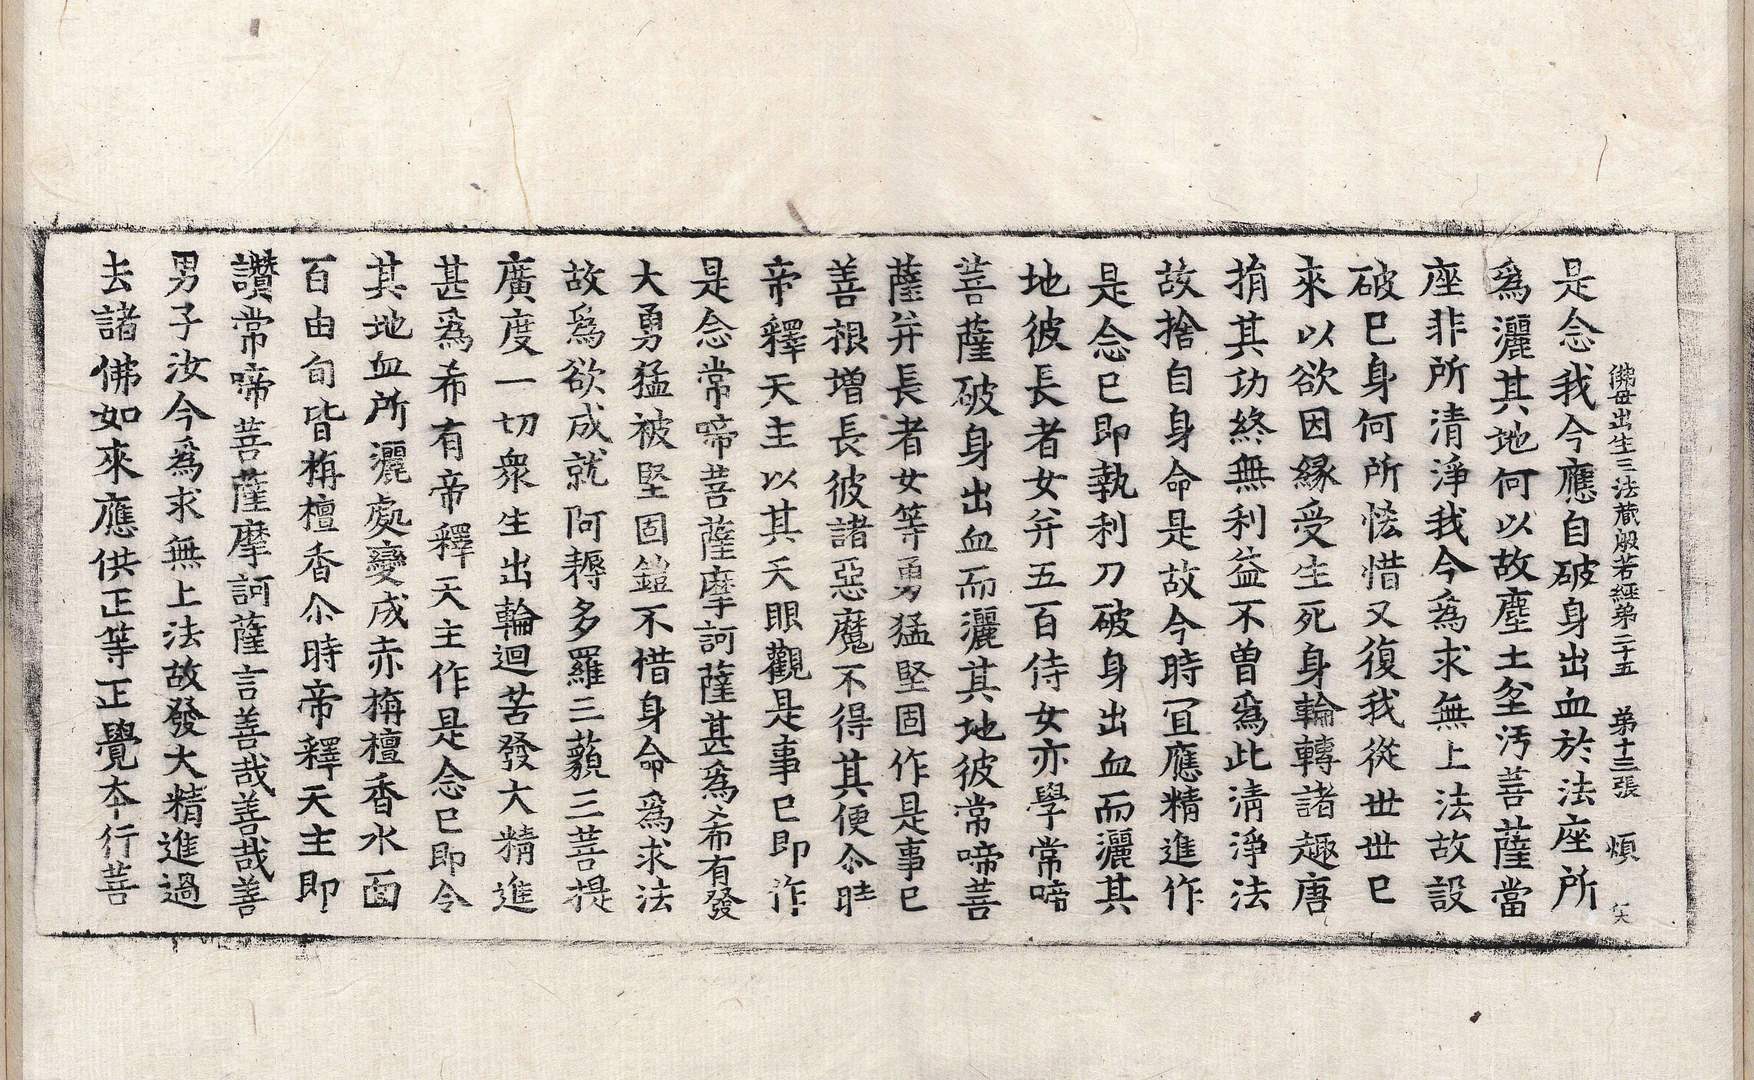 佛母出生三法藏般若經弟二十五 弟十三張 煩
是念我今應自破身出血於法座所
爲灑其地何以故塵土坌汚菩薩當
座非所清淨我今爲求無上法故設
破已身何所恡惜又復我從世世已
來以欲因緣受生死身輪轉諸趣唐
捐其功終無利益不曽爲此清淨法
故捨自身命是故今時冝應精進作
是念已即執利刀破身出血而灑其
地彼長者女并五百侍女亦學常啼
菩薩破身出血而灑其地彼常啼菩
薩并長者女等勇猛堅固作是事已
善根增長彼諸惡魔不得其便尒時
帝釋天主以其天眼觀是事已即作
是念常啼菩薩摩訶薩甚爲希有發
大勇猛被堅固鎧不惜身命爲求法
故爲欲成就阿耨多羅三藐三菩提
廣度一切衆生出輪迴苦發大精進
甚爲希有帝釋天主作是念已即令
其地血所灑處變成赤栴檀香水面
百由旬皆栴檀香尒時帝釋天主即
讃常啼菩薩摩訶薩言善哉善哉善
男子汝今爲求無上法故發大精進過
去諸佛如來應供正等正覺夲行菩